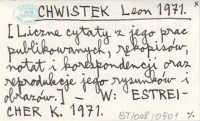 CHWISTEK Leon 1971.
[Liczne cytaty z jego prac
publikowanych, rękopisów,
notat i korespondencji oraz
reprodukcje jego rysunków i
obrazów.] — W: ESTREI-
CHER K. 1971.
BT/008/10501